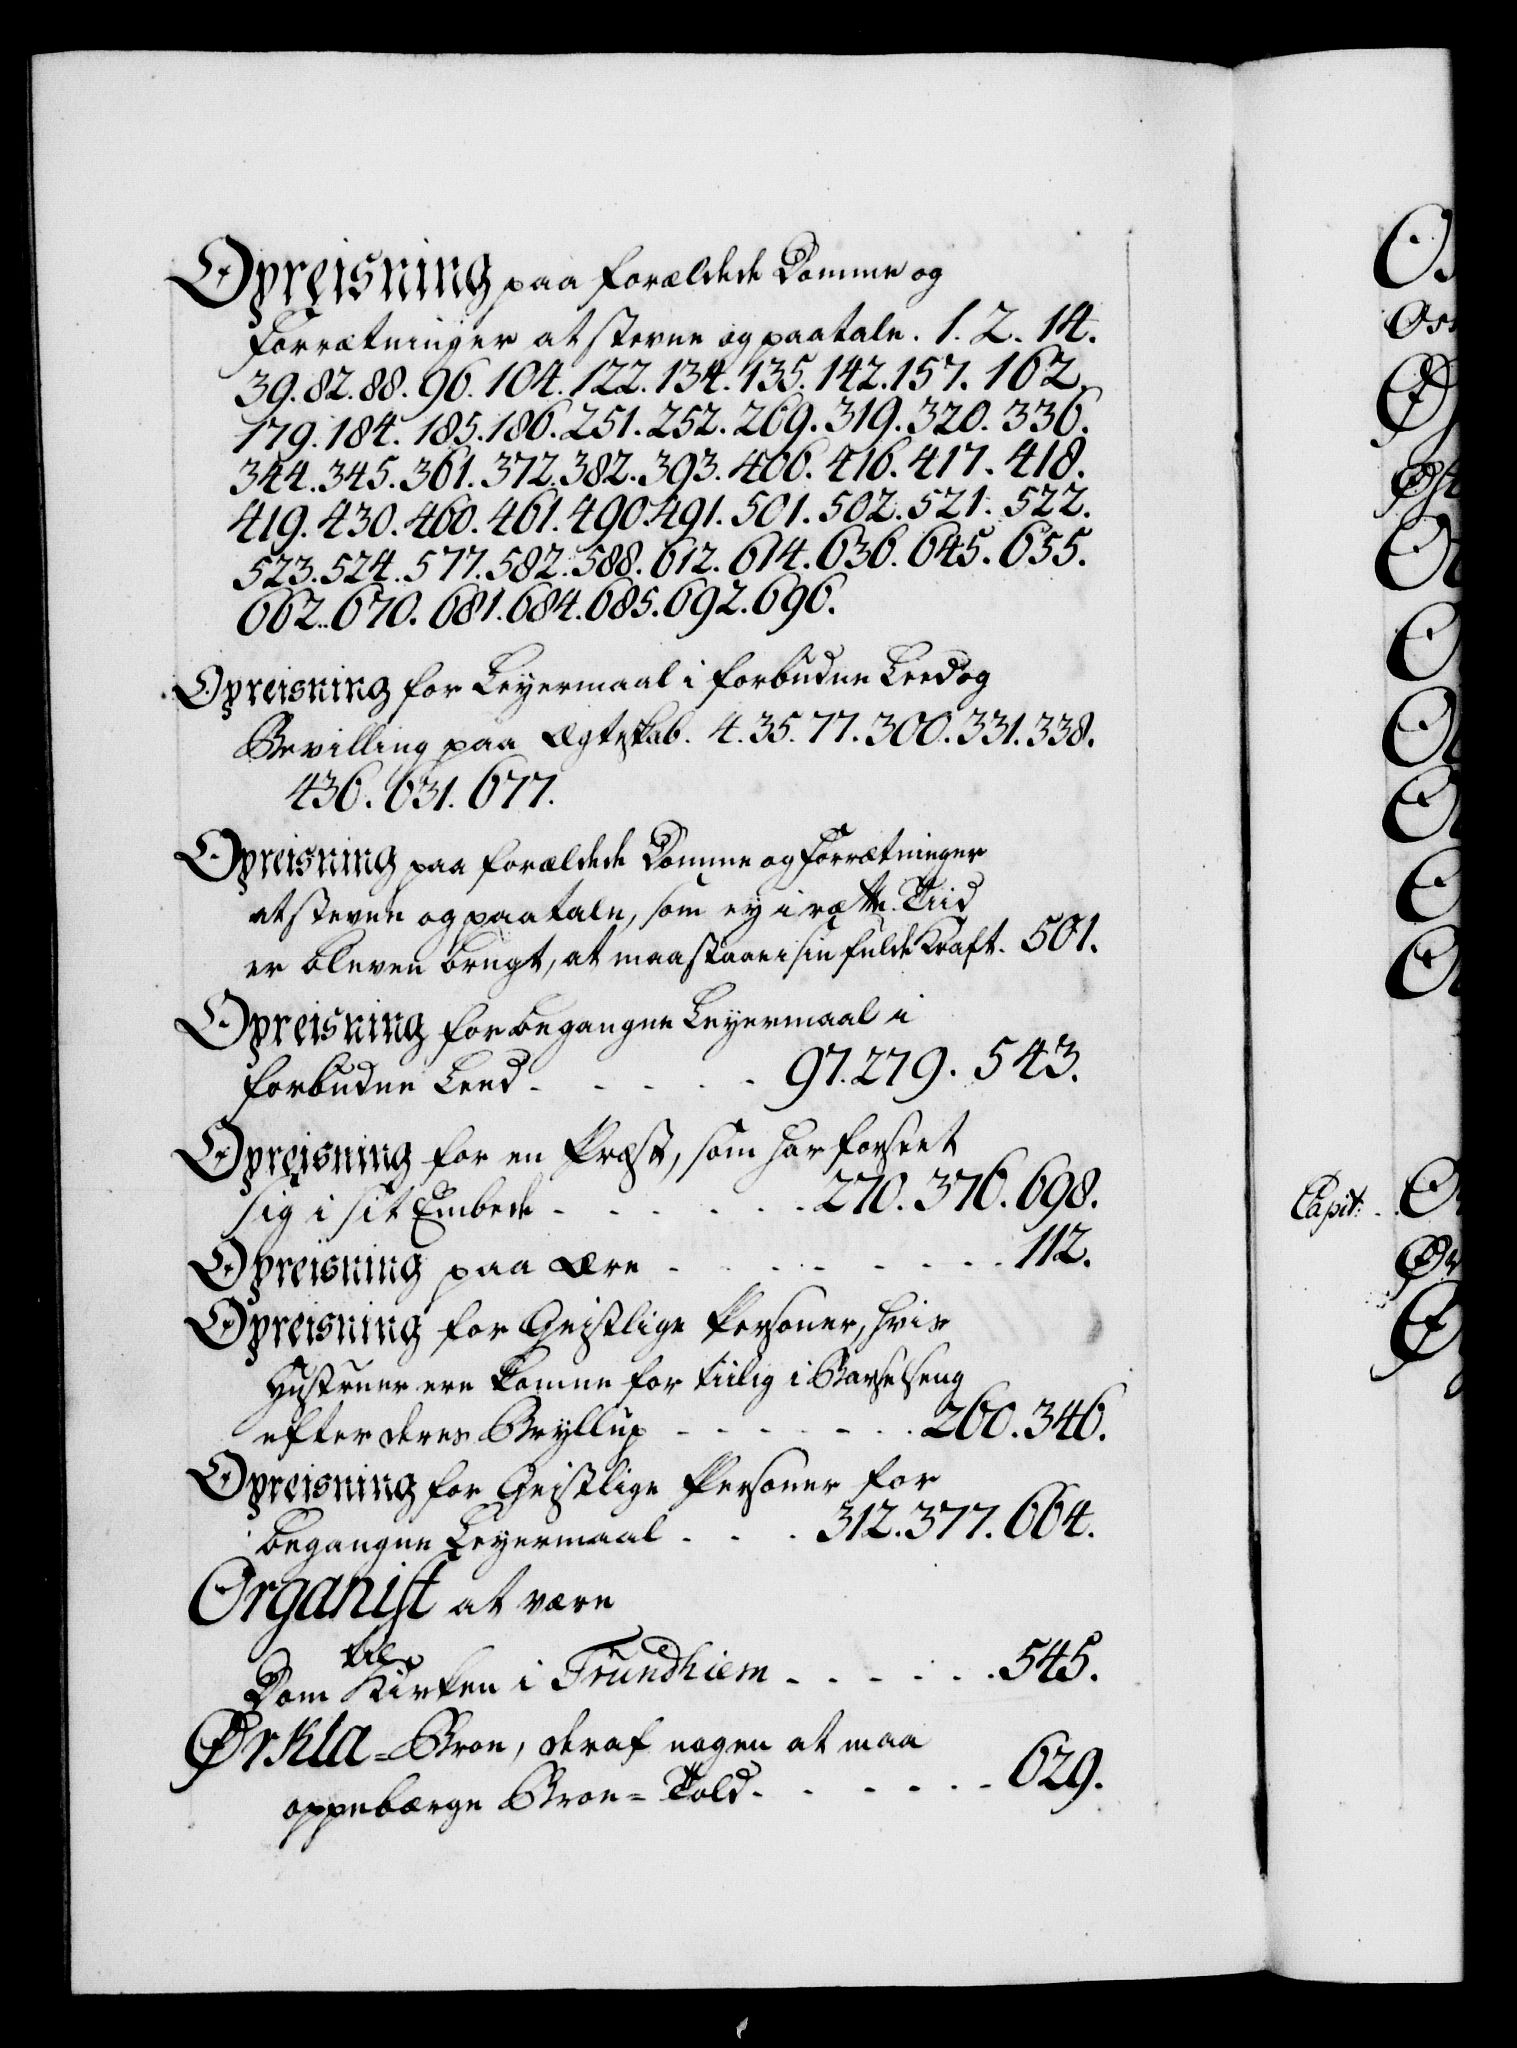 Opreisning paa forældede Domme og
Forrætninger at stevne og paatale. 1. 2. 14.
39. 82. 88. 96. 104. 122. 134. 135. 142. 157. 162.
179. 184. 185. 186. 251. 252. 269. 319. 320. 336.
344. 345. 361. 372. 382. 393. 406. 416. 417. 418.
419. 430. 460. 461. 490. 491. 501. 502. 521. 522.
523. 524. 577. 582. 588. 612. 614. 636. 645. 655.
662. 670. 681. 684. 685. 692. 696.
Opreisning for Leyermaal i forbudne Leed og
Bevilling paa Ægteskab. 4. 35. 77. 300. 331. 338.
436. 631. 677.
Opreisning paa forældede Domme og Forrætninger
at stevne og paatale, som ey i rætte Tiid
er bleven brugt, at maa staae i sin fulde Kraft. 501.
Opreisning for begangne Leyermaal i
forbudne Leed - - - - - 97. 279. 543.
Opreisning for en Præst, som har forseet
sig i sit Embede - - - - - - 270. 376. 698.
Opreisning paa Ære - - - - - - - - 112.
Opreisning for Geistlige Personer, hvis
Hustruer ere komne for tiilig i Barselseng
efter deres Bryllup - - - - - - 260. 346.
Opreisning for Geistlige Personer for
begangne Leyermaal - - - 312. 377. 664.
Organist at være
til
Dom Kirken i Trundhiem - - - - - - 545.
Ørkla = Broe, deraf nogen at maa
oppebærge Broe = Told - - - - - - 629.
Capit: